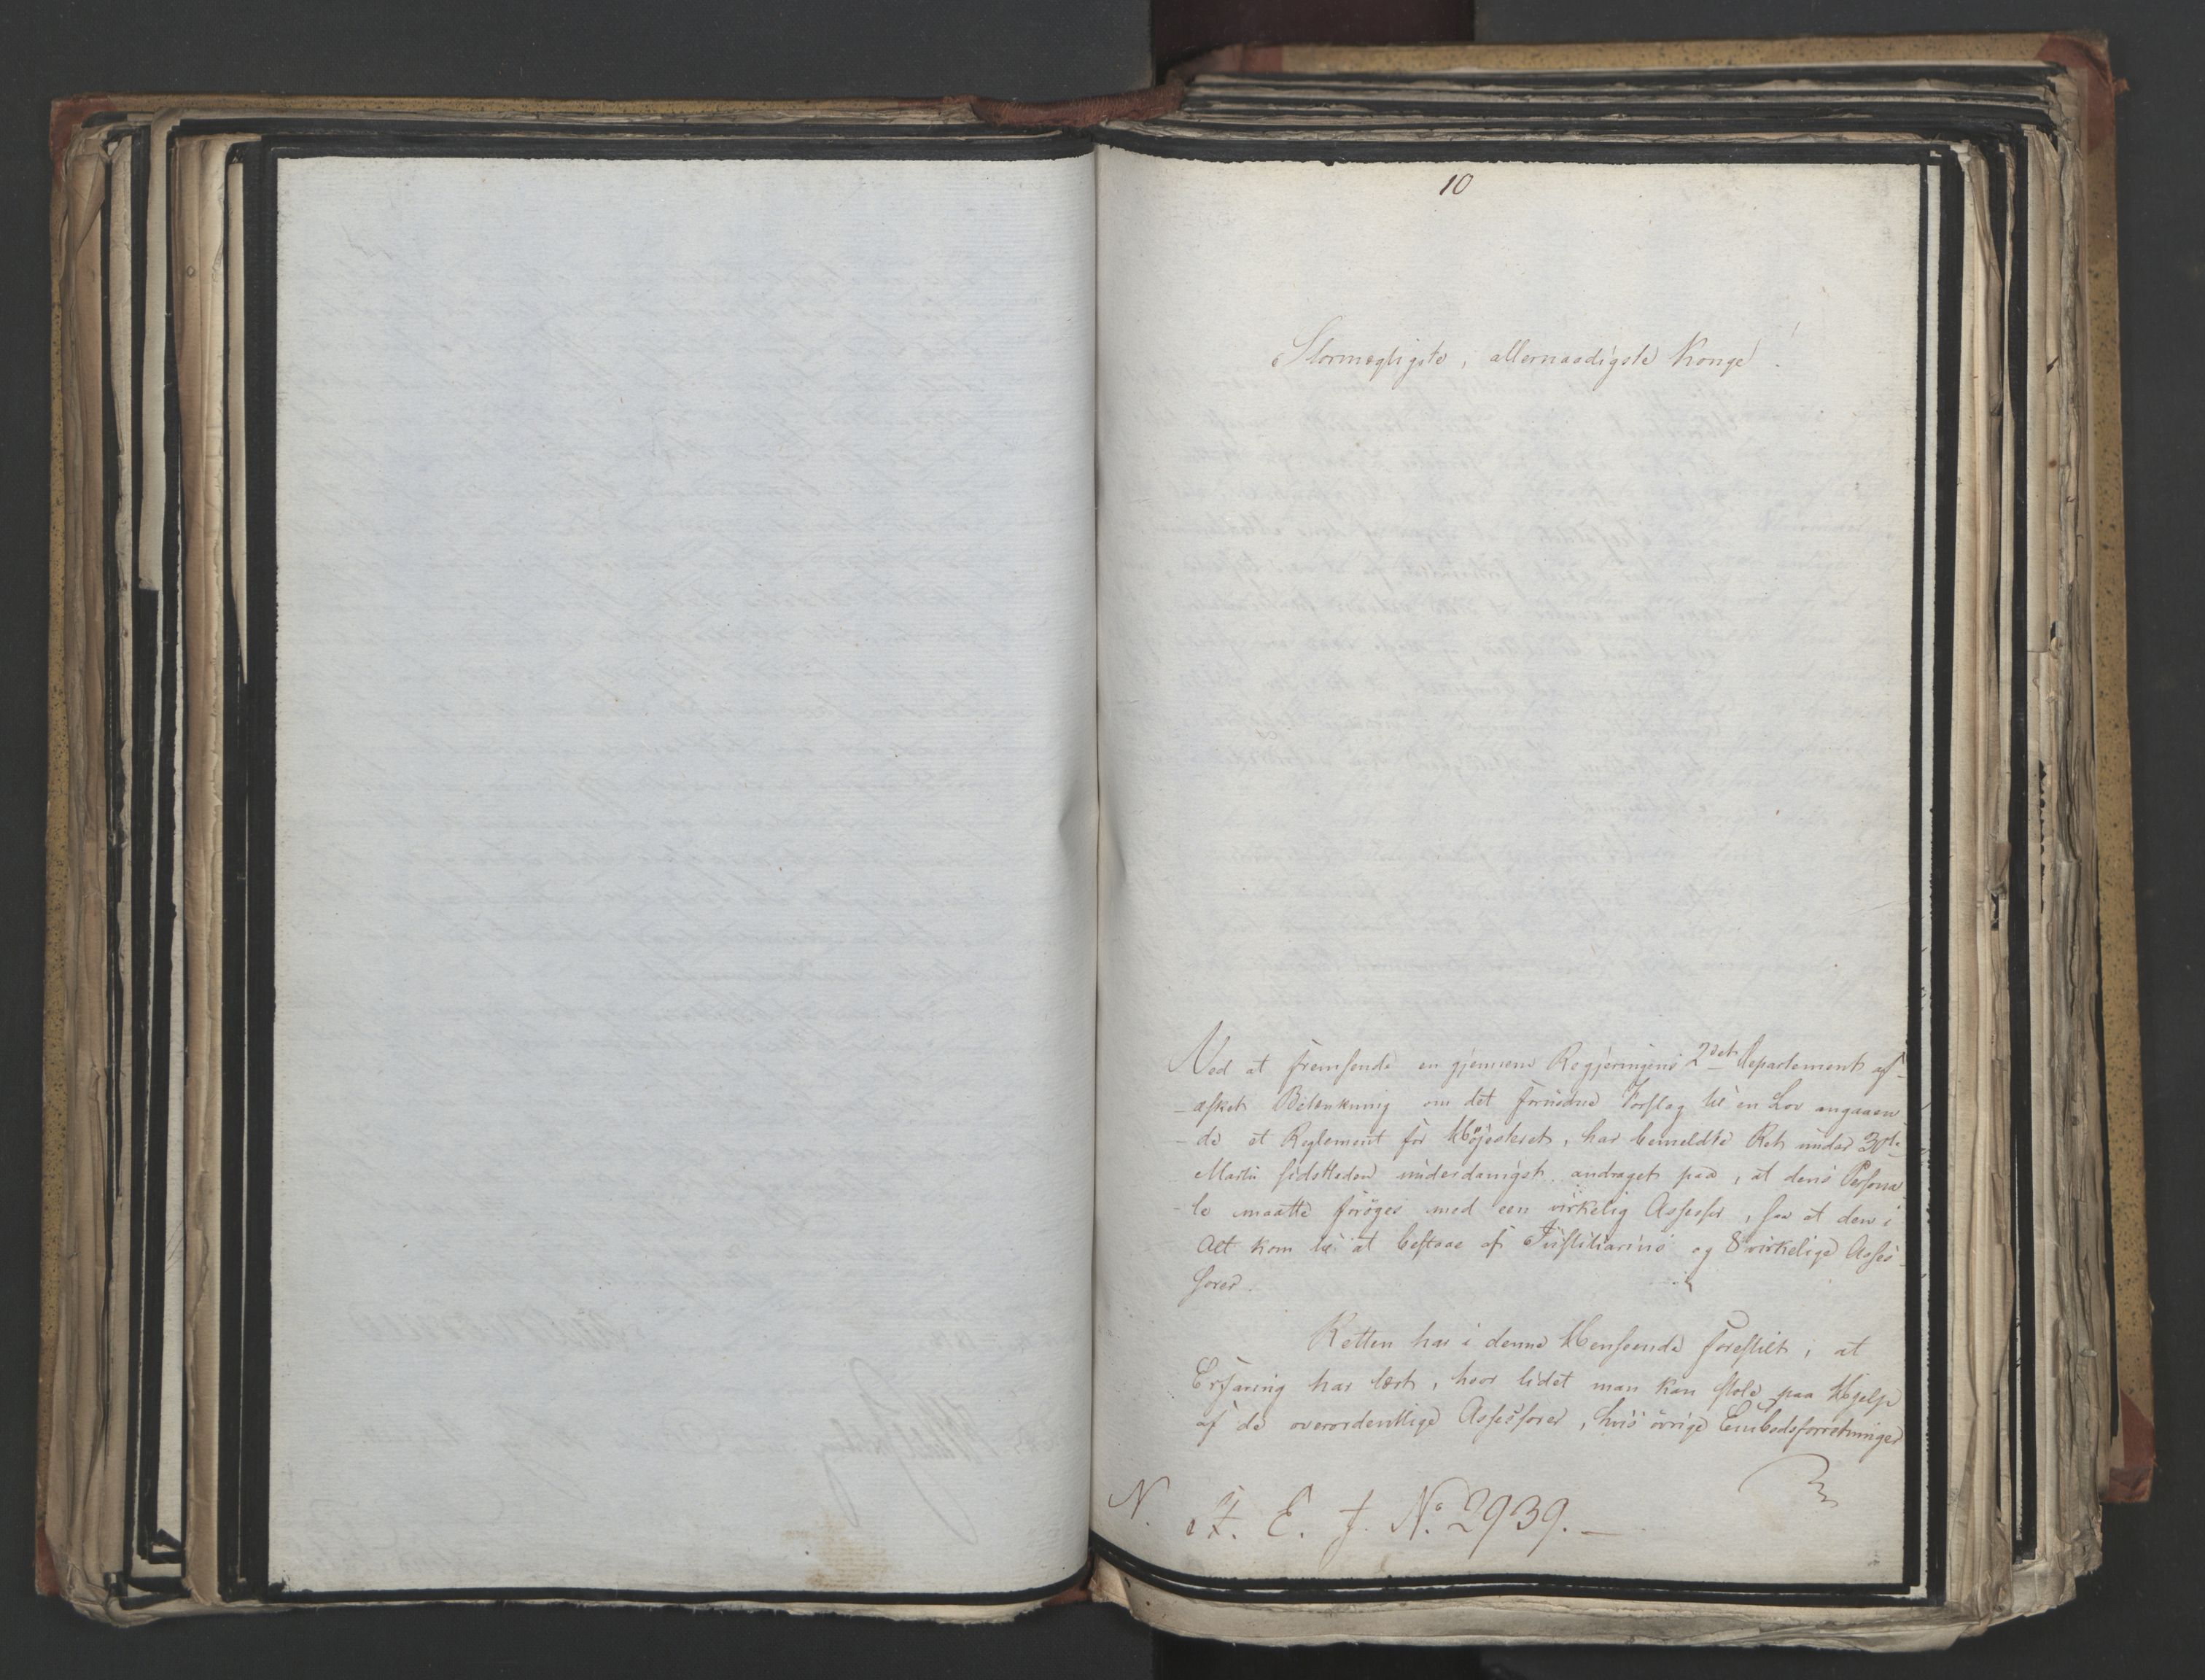 10
Stormægtigste, allernaadigste Konge!
Ved at fremsende en gjennem Regjeringens 2det Departement af-
-æsket Betænkning om det Forslag til en Lov angaaen-
-de et Reglement for Høiesteret, har bemeldte Ret under 30te
Martii sidstleden underdanigst andraget paa, at dens Persona-
-le maatte forøges med een virkelig Assessor, saa at den i
Alt kom til at bestaae af Justitiarius og 8 virkelige Asses-
sorer.
Retten har i denne Henseende forestilt, at
Erfaring har lært, hvor lidet man kan stole paa Hjelp
af de overordentlige Assessorer, hvis øvrige Embedsforretninger
N. E. J. No. 2939.